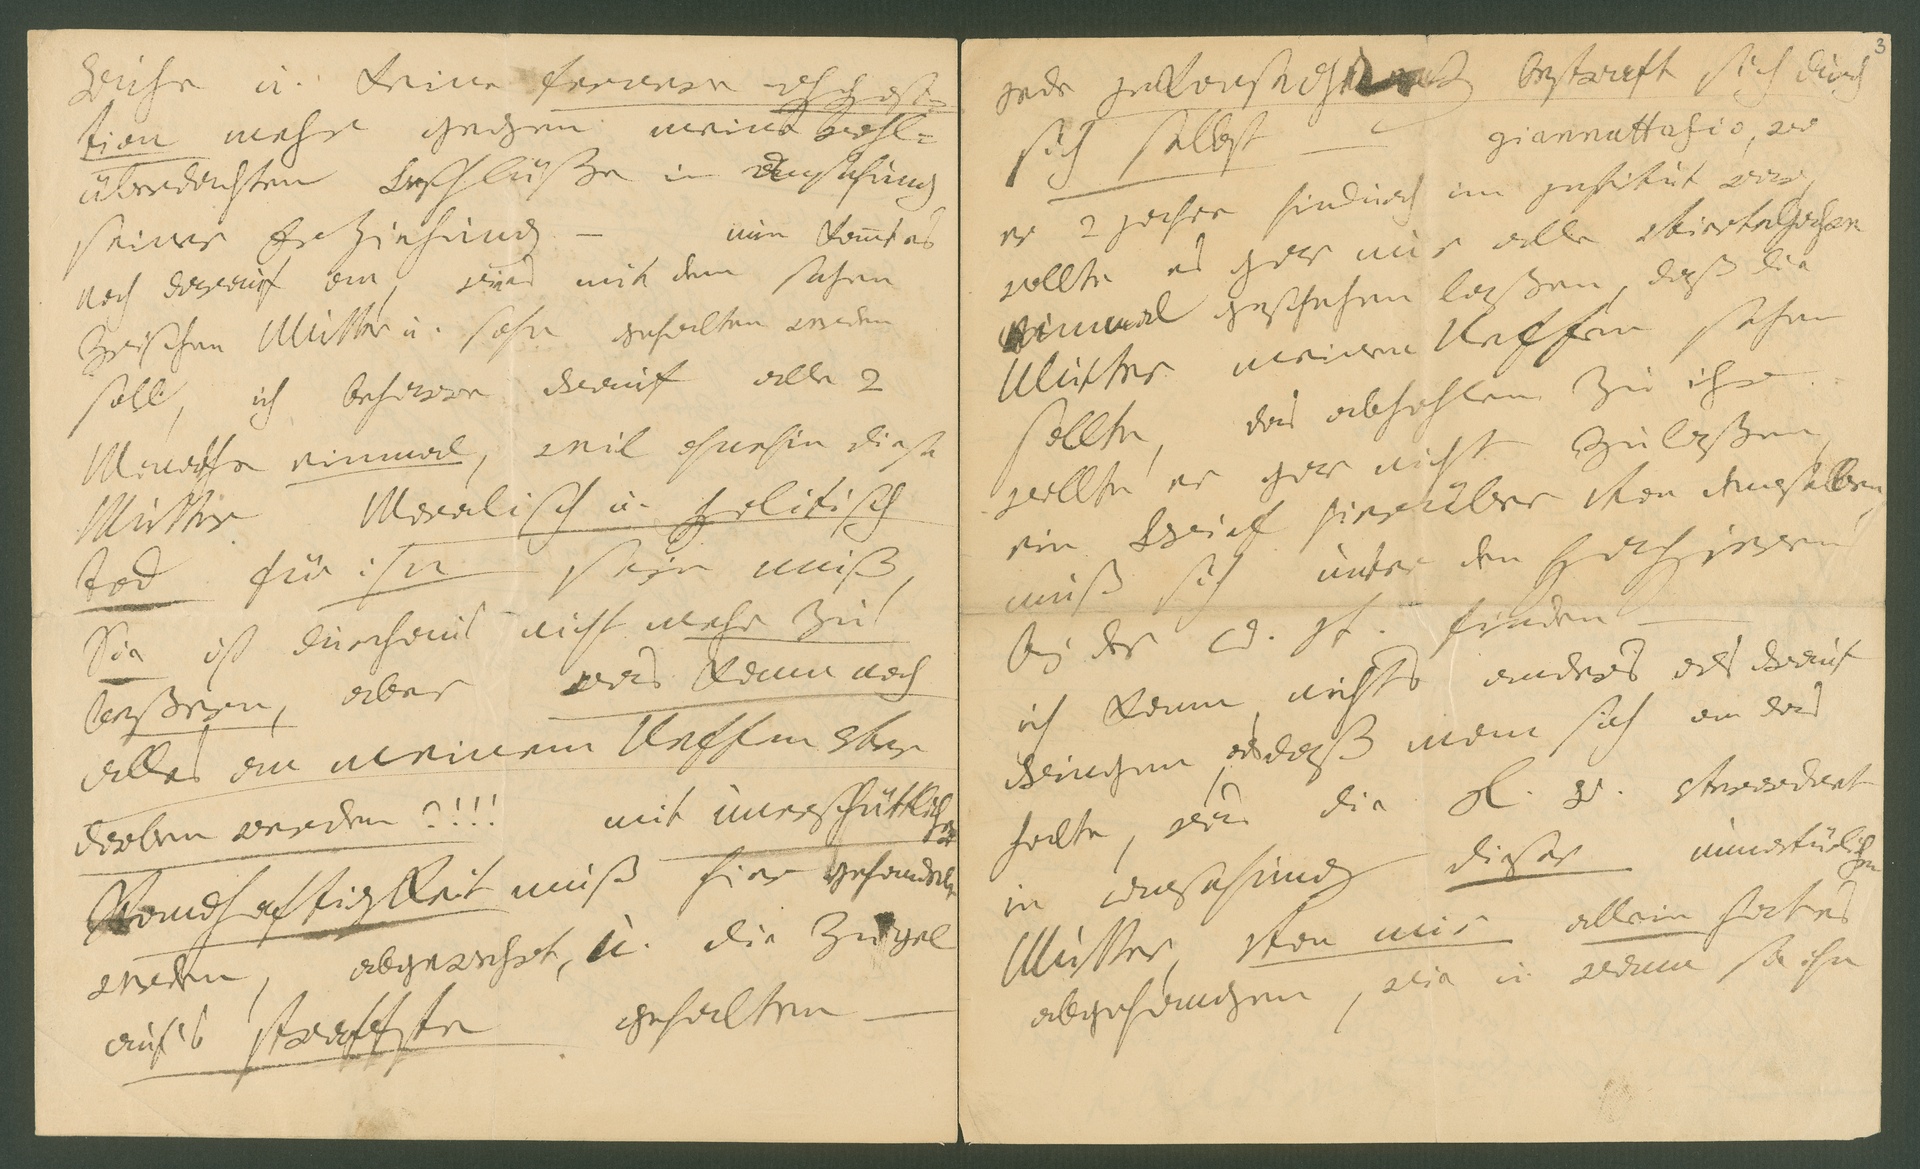 Ruhe u. keine fernere opposi=
tion mehr gegen meine wohl=
überdachten Beschlüße in Ansehung
seiner Erziehung — nun kommt es
noch darauf an, wie es mit dem sehen
zwischen Mutter u. sohn gehalten werden
soll, ich beharre darauf alle 2
Monathe einmal, weil ohnehin diese
Mutter Moralisch u. politisch
tod für ihn seyn muß,
Sie ist durchaus nicht mehr zu
beßern, aber was kann noch
alles an meinem Neffen ver
dorben werden?!!! mit unerschütterlicher
Standhaftigkeit muß hier gehandelt
werden, abgewehrt, u. die Zügel
auf's straffste gehalten —
3
jede bestraft sich durch
sich selbst — giannattasio, wo
er 2 jahre hindurch im institut war,
wollte es gar nur alle Vierteljahr
einmal geschehen laßen, daß die
Mutter meinen Neffen sehen
sollte, das abhohlen zu ihr
wollte er gar nicht zulaßen,
ein Brief hierüber von demselben
muß sich unter den Papieren
bey der finden —
ich kann nichts anders als darauf
dringen, daß man sich an das
halte, was die
in ansehung dieser unnatürlichen
Mutter, von mir allein hat es
abgehangen, wie u. wann sie ihn